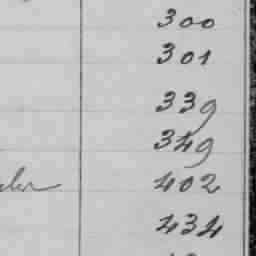 300
301
339
349
402
434